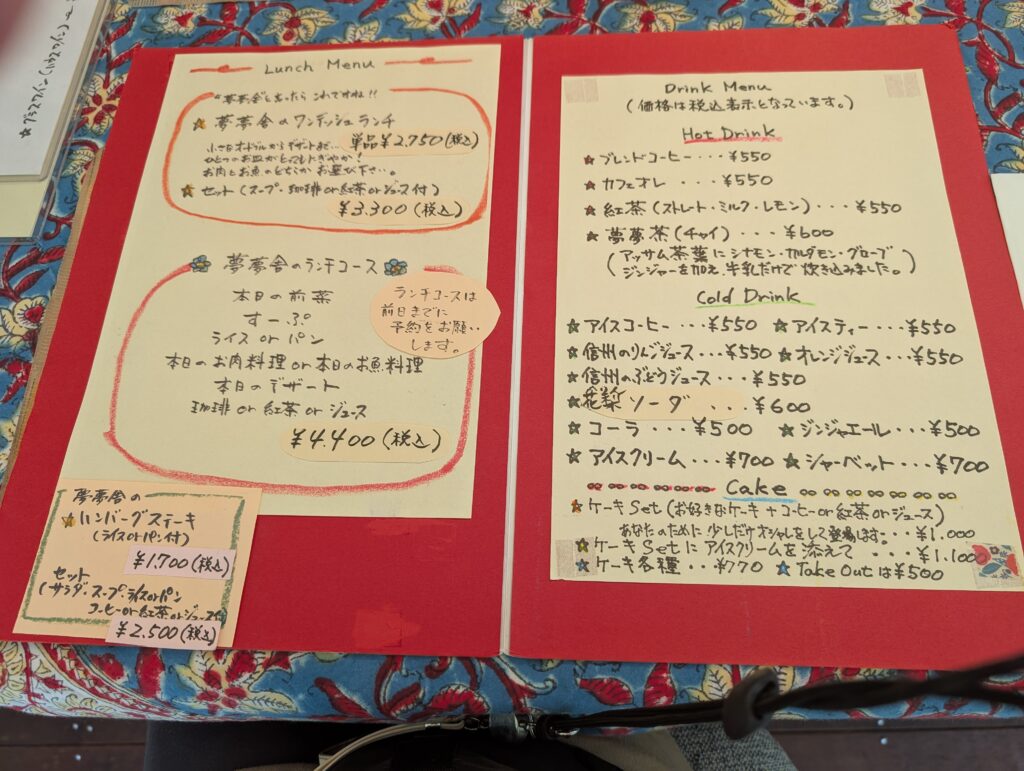 Lunch Menu
"夢夢舎"と言ったら これですね!!
☆ 夢夢舎のワンディッシュランチ
単品¥2,750(税込)
小さなオードブルからデザートまで...
ひとつのお皿がとってもにぎやか!
お肉とお魚のどちらかお選び下さい。
☆セット(スープ・珈琲or紅茶orジュース付)
¥3,300(税込)
夢夢舎のランチコース
ランチコースは
前日までに
予約をお願い
します。
本日の前菜
すーぷ
ライス or パン
本日のお肉料理 or 本日のお魚料理
本日のデザート
珈琲 or 紅茶 or ジュース
¥4,400(税込)
夢夢舎の
☆ハンバーグステーキ
(ライスorパン付)
¥1,700(税込)
セット
(サラダ・スープ・ライスorパン
コーヒーor紅茶orジュース付
¥2,500(税込)
Drink Menu
(価格は税込表示となっています。)
Hot Drink
★ブレンドコーヒー・・・¥550
★カフェオレ ・・・¥550
★紅茶(ストレート・ミルク・レモン)・・・¥550
★夢夢茶(チャイ) ・・・¥600
(アッサム茶葉にシナモン・カルダモン・グローブ
ジンジャーを加え、牛乳だけで炊き込みました。)
Cold Drink
★アイスコーヒー・・・¥550 ★アイスティー・・・¥550
★信州のりんごジュース・・・¥550 ★オレンジジュース・・・¥550
★信州のぶどうジュース・・・¥550
★花梨ソーダ ・・・¥600
★コーラ ・・・¥500 ★ジンジャエール・・・¥500
★アイスクリーム・・・¥700 ★シャーベット・・・¥700
Cake
★ケーキSet(お好きなケーキ+コーヒーor紅茶orジュース)
あなたのために少しだけオシャレをして登場します。・・・¥1,000
★ケーキSetにアイスクリームを添えて ・・・¥1,100
★ケーキ各種・・・¥770 ★Take Outは¥500